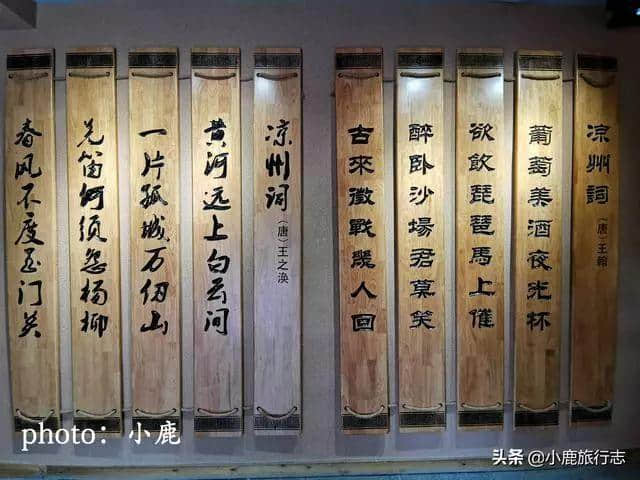 凉州词
(唐)王翰
葡萄美酒夜光杯
欲飲琵琶馬上催
醉卧沙場君莫笑
古來徵戰幾人回
凉州词
(唐)王之涣
黄河远上白云间
一片孤城万仞山
羌笛何须怨杨柳
春风不度玉门关
photo：小鹿
头条@小鹿旅行志